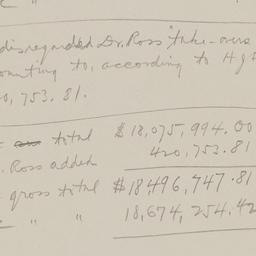 " "
disregarded Dr. Ross' take-overs
ounting to, according to H &
0,753.81.
= total $18,075,994.00
. Ross added 420,753.81
= gross total $18,496,747.81
" " 18,674,254.42